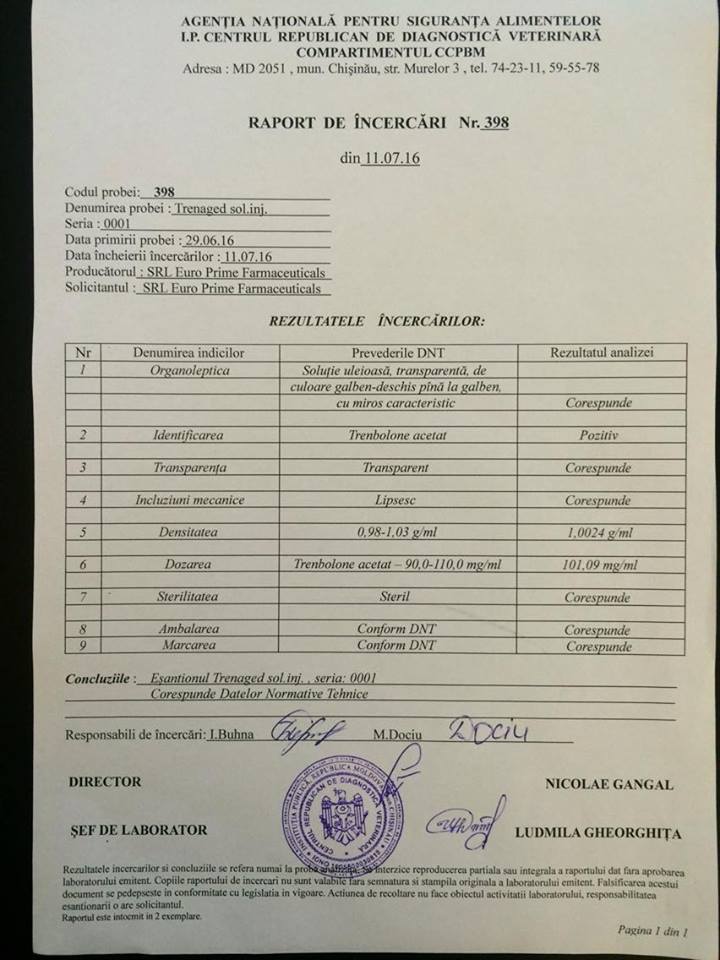 AGENŢIA NAŢIONALĂ PENTRU SIGURANŢA ALIMENTELOR
I.P. CENTRUL REPUBLICAN DE DIAGNOSTICĂ VETERINARĂ
COMPARTIMENTUL CCPBM
Adresa : MD 2051 , mun. Chişinău, str. Murelor 3 , tel. 74-23-11, 59-55-78
RAPORT DE ÎNCERCĂRI Nr. 398
din 11.07.16
Codul probei: 398
Denumirea probei : Trenaged sol.inj.
Seria : 0001
Data primirii probei : 29.06.16
Data încheierii încercărilor : 11.07.16
Producătorul : SRL Euro Prime Farmaceuticals
Solicitantul : SRL Euro Prime Farmaceuticals
REZULTATELE ÎNCERCĂRILOR:
Nr Denumirea indicilor Prevederile DNT Rezultatul analizei
1 Organoleptica Soluţie uleioasă, transparentă, de
culoare galben-deschis pînă la galben,
cu miros caracteristic Corespunde
2 Identificarea Trenbolone acetat Pozitiv
3 Transparenţa Transparent Corespunde
4 Incluziuni mecanice Lipsesc Corespunde
5 Densitatea 0,98-1,03 g/ml 1,0024 g/ml
6 Dozarea Trenbolone acetat – 90,0-110,0 mg/ml 101,09 mg/ml
7 Sterilitatea Steril Corespunde
8 Ambalarea Conform DNT Corespunde
9 Marcarea Conform DNT Corespunde
Concluziile : Eşantionul Trenaged sol.inj. , seria: 0001
Corespunde Datelor Normative Tehnice
Responsabili de încercări: I.Buhna M.Dociu Dociu
DIRECTOR NICOLAE GANGAL
ŞEF DE LABORATOR LUDMILA GHEORGHIŢA
INSTITUŢIA PUBLICĂ, REPUBLICA MOLDOVA
CENTRUL REPUBLICAN DE DIAGNOSTICĂ VETERINARĂ
Rezultatele incercarilor si concluziile se refera numai la proba analizata. Se interzice reproducerea partiala sau integrala a raportului dat fara aprobarea
laboratorului emitent. Copiile raportului de incercari nu sunt valabile fara semnatura si stampila originala a laboratorului emitent. Falsificarea acestui
document se pedepseste in conformitate cu legislatia in vigoare. Actiunea de recoltare nu face obiectul activitatii laboratorului, responsabilitatea
esantionarii o are solicitantul.
Raportul este intocmit in 2 exemplare.
Pagina 1 din 1